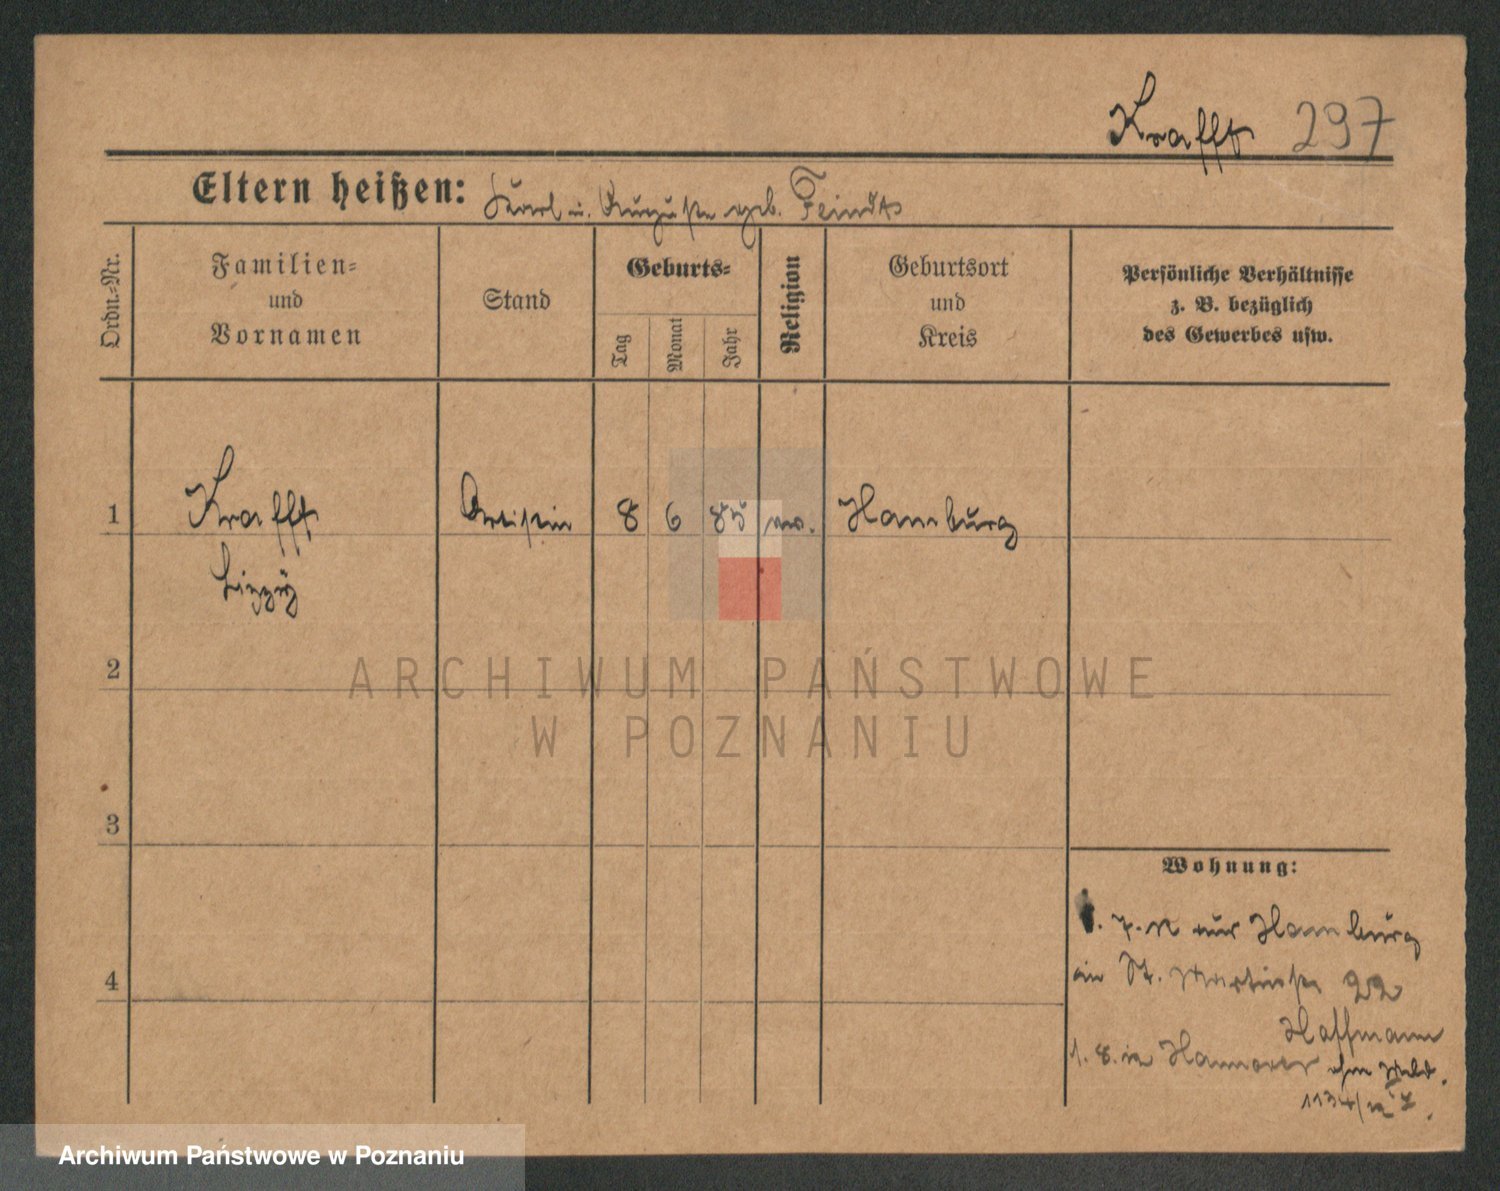 Krafft 297
Eltern heißen: Karl u. Auguste geb. Feindt
Ordn.=Nr.
Familien=
und
Vornamen
Stand
Geburts=
Tag
Monat
Jahr
Religion
Geburtsort
und
Kreis
Persönliche Verhältnisse
z. B. bezüglich
des Gewerbes usw.
1 Krafft Artistin 8 6 85 ev. Hamburg
2
3
4
Wohnung:
aus Hamburg
St. Martinstr 22
Hoffmann
1. 8. in Hannover ohne Meld.
ARCHIWUM PAŃSTWOWE
W POZNANIU
Archiwum Państwowe w Poznaniu